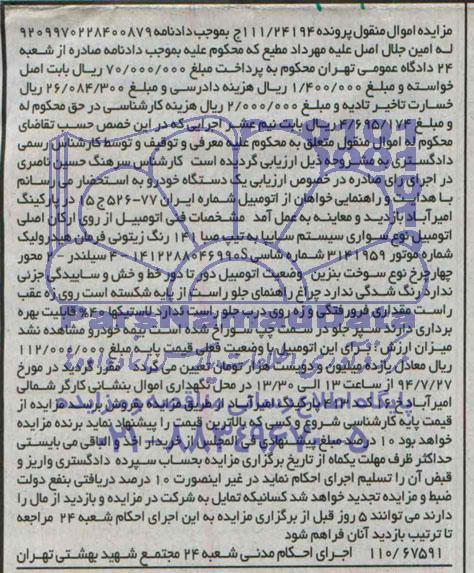 مزایده اموال منقول پرونده ۱۱۱/۲۴۱۹۴ج بموجب دادنامه ۹۲۰۹۹۷۰۲۲۸۴۰۰۸۷۹
له امین جلال اصل علیه مهرداد مطیع که محکوم علیه بموجب دادنامه صادره از شعبه
۲۴ دادگاه عمومی تهران محکوم به پرداخت مبلغ ۷۰/۰۰۰/۰۰۰ ریال بابت اصل
خواسته و مبلغ ۱/۴۰۰/۰۰۰ ریال هزینه دادرسی و مبلغ ۲۶/۰۸۴/۳۰۰ ریال
خسارت تاخیر تادیه و مبلغ ۲/۰۰۰/۰۰۰ ریال هزینه کارشناسی در حق محکوم له
و مبلغ ۴/۶۹۵/۱۷۴ ریال بابت نیم عشر اجرایی که در این خصص حسب تقاضای
محکوم له اموال منقول متعلق به محکوم علیه معرفی و توقیف و توسط کارشناس رسمی
دادگستری به مشروحه ذیل ارزیابی گردیده است کارشناس سرهنگ حسین ناصری
در اجرای رای صادره در خصوص ارزیابی یک دستگاه خودرو به استحضار می رسانم
با هدایت و راهنمایی خواهان از اتومبیل شماره ایران ۷۷-۵۲۶ج۵ در پارکینگ
امیرآباد بازدید و معاینه به عمل آمد مشخصات فنی اتومبیل از روی ارکان اصلی
اتومبیل نوع سواری سیستم سایپا به تیپ صبا ۱۴۱ رنگ زیتونی فرمان هیدرولیک
شماره موتور ۳۱۴۱۹۵۹ شماره شاسی S۱۴۱۲۲۸۸۰۴۶۹۹۰ ۴ سیلندر - ۲ محور
چهارچرخ نوع سوخت بنزین وضعیت اتومبیل دور تا دور خط و خش و ساییدگی جزئی
ندارد رنگ شدگی ندارد چراغ راهنمای جلو راست از پایه شکسته است روی زه عقب
راست مقداری فرورفتگی و زه روی درب جلو راست ندارد لاستیکها ۴۰% قابلیت بهره
برداری دارد سپر جلو در سمت چپ سوراخ شده است بیمه خودرو مشاهده نشد
میزان ارزش: برای این اتومبیل با وضعیت فعلی قیمت پایه مبلغ ۱۱۲/۰۰۰/۰۰۰
ریال معادل یازده میلیون و دویست هزار تومان تعیین می گردد مقرر گردید در مورخ
۹۴/۷/۲۷ از ساعت ۱۳ الی ۱۳/۳۰ در محل نگهداری اموال بنشانی کارگر شمالی
امیرآباد پارکینگ امیرآباد از طریق مزایده فروش برسد مزایده از
قیمت پایه کارشناسی شروع و کسی که بالاترین قیمت را پیشنهاد نماید برنده مزایده
خواهد بود ۱۰ درصد مبلغ پیشنهادی فی المجلس از خریدار اخذ و الباقی می بایستی
حداکثر ظرف مهلت یکماه از تاریخ برگزاری مزایده بحساب سپرده دادگستری واریز و
قبض آن را تسلیم اجرای احکام نماید در غیر اینصورت ۱۰ درصد دریافتی بنفع دولت
ضبط و مزایده تجدید خواهد شد کسانیکه تمایل به شرکت در مزایده و بازدید از مال را
دارند می توانند ۵ روز قبل از برگزاری مزایده به این اجرای احکام شعبه ۲۴ مراجعه
تا ترتیب بازدید آنان فراهم شود
۱۱۰/۶۷۵۹۱ اجرای احکام مدنی شعبه ۲۴ مجتمع شهید بهشتی تهران